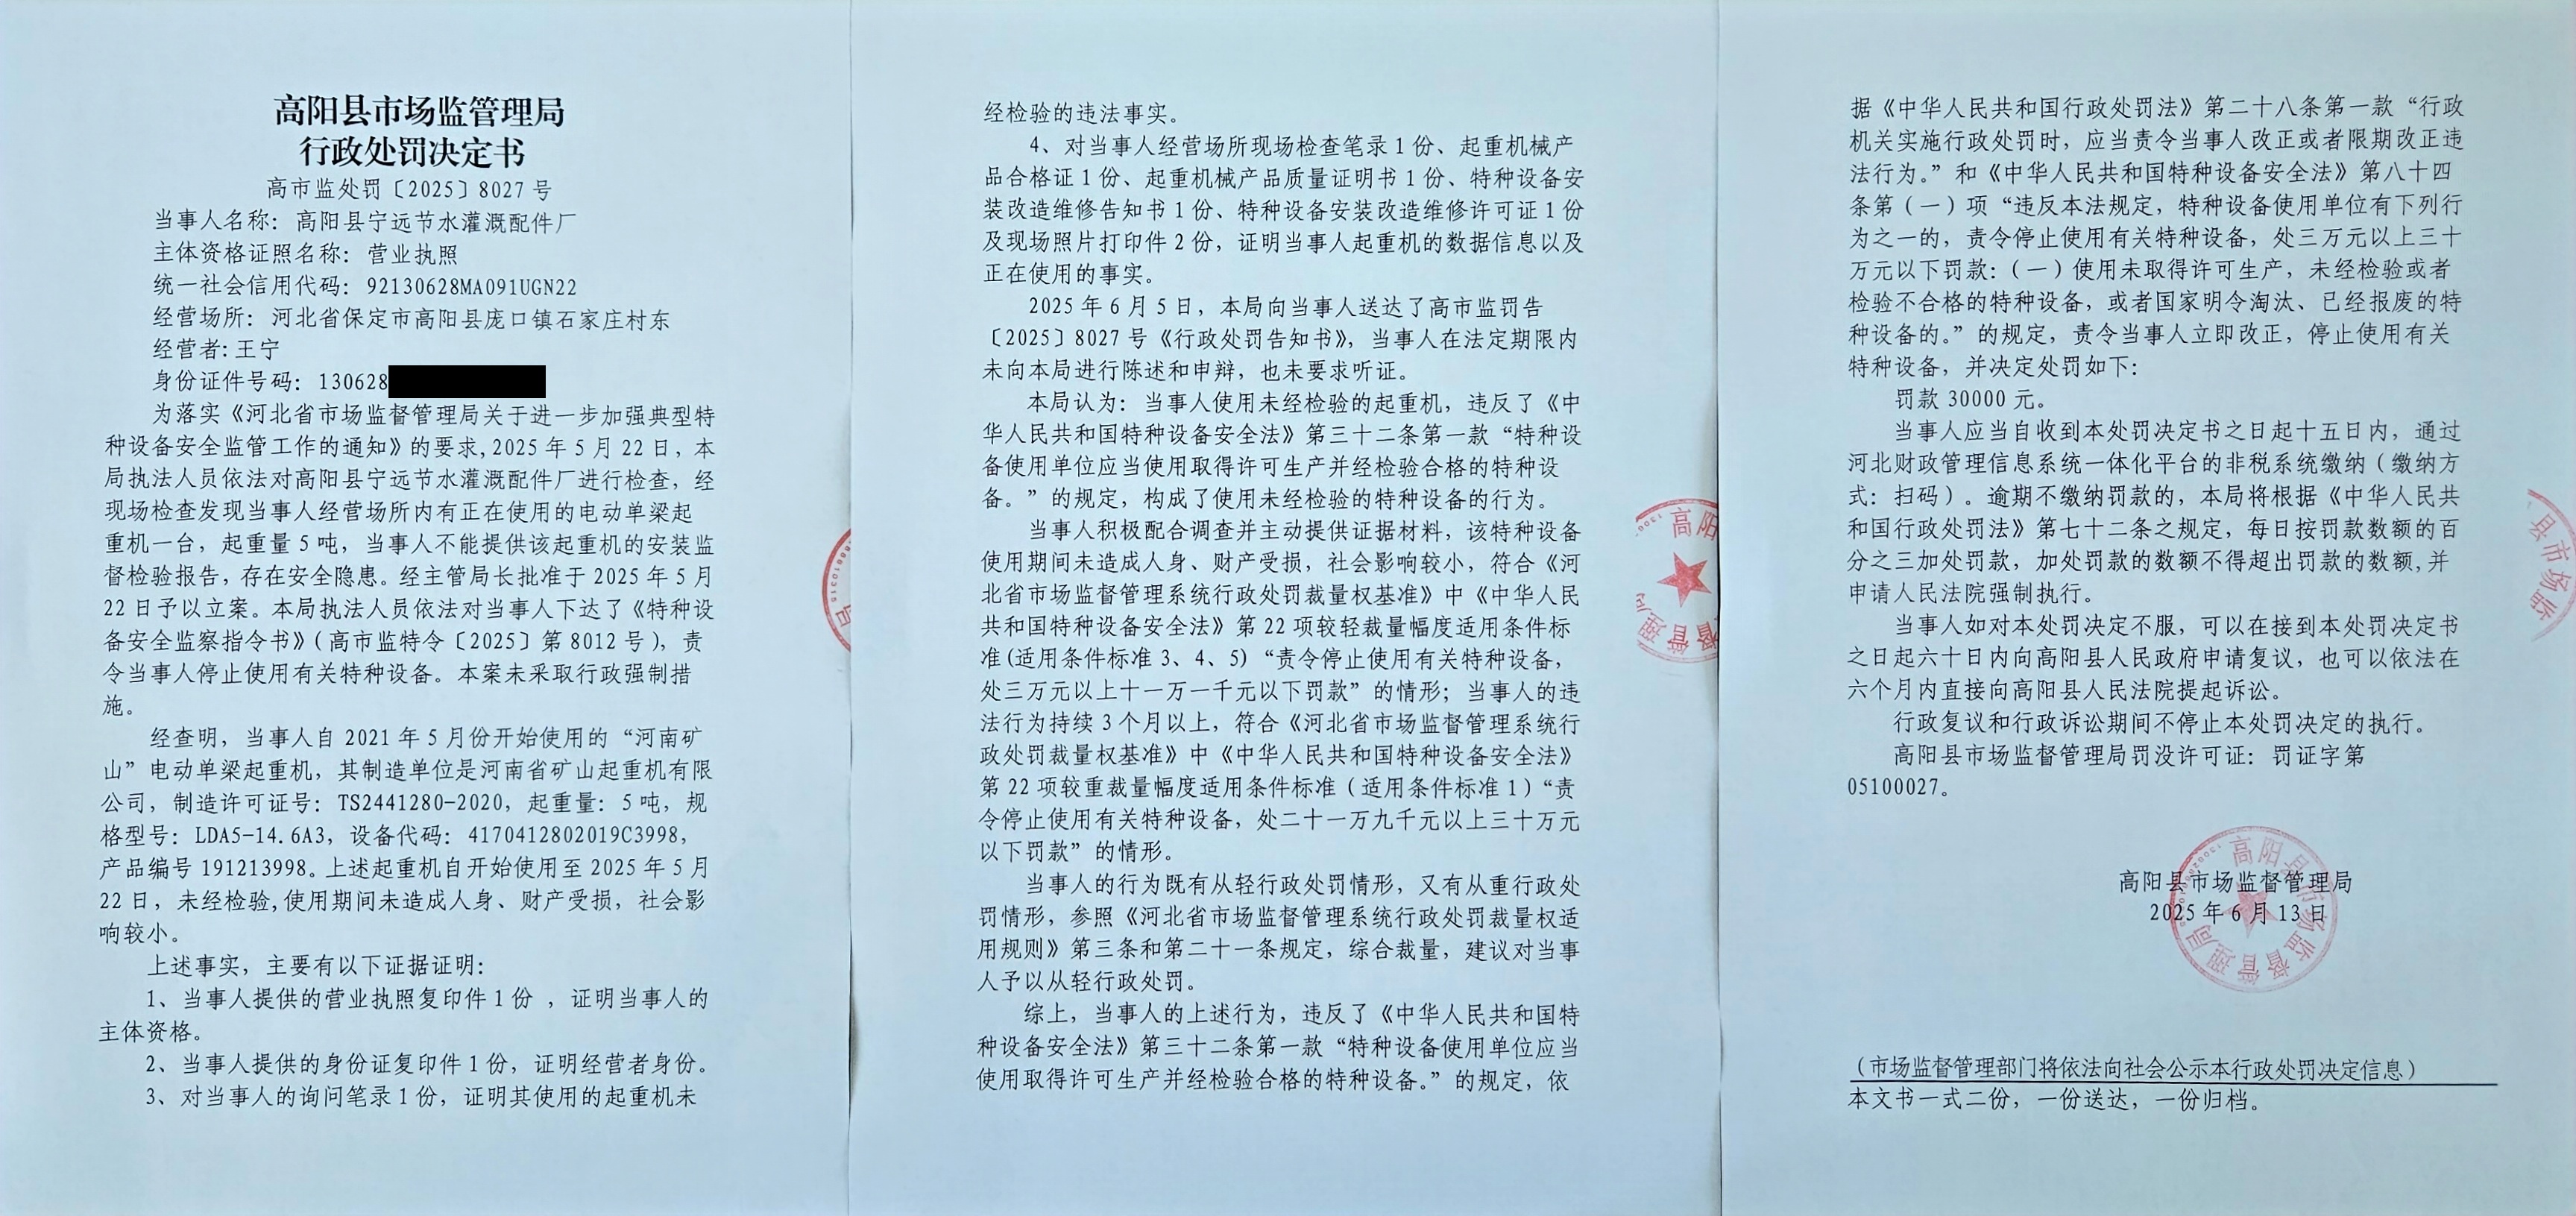 高阳县市场监管理局
行政处罚决定书
高市监处罚〔2025〕8027 号
当事人名称：高阳县宁远节水灌溉配件厂
主体资格证照名称：营业执照
统一社会信用代码：92130628MA091UGN22
经营场所：河北省保定市高阳县庞口镇石家庄村东
经营者:王宁
身份证件号码：130628
为落实《河北省市场监督管理局关于进一步加强典型特
种设备安全监管工作的通知》的要求,2025 年 5 月 22 日，本
局执法人员依法对高阳县宁远节水灌溉配件厂进行检查，经
现场检查发现当事人经营场所内有正在使用的电动单梁起
重机一台，起重量 5 吨，当事人不能提供该起重机的安装监
督检验报告，存在安全隐患。经主管局长批准于 2025 年 5 月
22 日予以立案。本局执法人员依法对当事人下达了《特种设
备安全监察指令书》（高市监特令〔2025〕第 8012 号），责
令当事人停止使用有关特种设备。本案未采取行政强制措
施。
经查明，当事人自 2021 年 5 月份开始使用的“河南矿
山”电动单梁起重机，其制造单位是河南省矿山起重机有限
公司，制造许可证号：TS2441280-2020，起重量：5 吨，规
格型号：LDA5-14.6A3，设备代码：4170412802019C3998，
产品编号 191213998。上述起重机自开始使用至 2025 年 5 月
22 日，未经检验,使用期间未造成人身、财产受损，社会影
响较小。
上述事实，主要有以下证据证明：
1、当事人提供的营业执照复印件 1 份 ，证明当事人的
主体资格。
2、当事人提供的身份证复印件 1 份，证明经营者身份。
3、对当事人的询问笔录 1 份，证明其使用的起重机未
经检验的违法事实。
4、对当事人经营场所现场检查笔录 1 份、起重机械产
品合格证 1 份、起重机械产品质量证明书 1 份、特种设备安
装改造维修告知书 1 份、特种设备安装改造维修许可证 1 份
及现场照片打印件 2 份，证明当事人起重机的数据信息以及
正在使用的事实。
2025 年 6 月 5 日，本局向当事人送达了高市监罚告
〔2025〕8027 号《行政处罚告知书》，当事人在法定期限内
未向本局进行陈述和申辩，也未要求听证。
本局认为：当事人使用未经检验的起重机，违反了《中
华人民共和国特种设备安全法》第三十二条第一款“特种设
备使用单位应当使用取得许可生产并经检验合格的特种设
备。”的规定，构成了使用未经检验的特种设备的行为。
当事人积极配合调查并主动提供证据材料，该特种设备
使用期间未造成人身、财产受损，社会影响较小，符合《河
北省市场监督管理系统行政处罚裁量权基准》中《中华人民
共和国特种设备安全法》第 22 项较轻裁量幅度适用条件标
准(适用条件标准 3、4、5) “责令停止使用有关特种设备，
处三万元以上十一万一千元以下罚款”的情形；当事人的违
法行为持续 3 个月以上，符合《河北省市场监督管理系统行
政处罚裁量权基准》中《中华人民共和国特种设备安全法》
第 22 项较重裁量幅度适用条件标准（适用条件标准 1）“责
令停止使用有关特种设备，处二十一万九千元以上三十万元
以下罚款”的情形。
当事人的行为既有从轻行政处罚情形，又有从重行政处
罚情形，参照《河北省市场监督管理系统行政处罚裁量权适
用规则》第三条和第二十一条规定，综合裁量，建议对当事
人予以从轻行政处罚。
综上，当事人的上述行为，违反了《中华人民共和国特
种设备安全法》第三十二条第一款“特种设备使用单位应当
使用取得许可生产并经检验合格的特种设备。”的规定，依
据《中华人民共和国行政处罚法》第二十八条第一款“行政
机关实施行政处罚时，应当责令当事人改正或者限期改正违
法行为。”和《中华人民共和国特种设备安全法》第八十四
条第（一）项“违反本法规定，特种设备使用单位有下列行
为之一的，责令停止使用有关特种设备，处三万元以上三十
万元以下罚款：（一）使用未取得许可生产，未经检验或者
检验不合格的特种设备，或者国家明令淘汰、已经报废的特
种设备的。”的规定，责令当事人立即改正，停止使用有关
特种设备，并决定处罚如下：
罚款 30000 元。
当事人应当自收到本处罚决定书之日起十五日内，通过
河北财政管理信息系统一体化平台的非税系统缴纳（缴纳方
式：扫码）。逾期不缴纳罚款的，本局将根据《中华人民共
和国行政处罚法》第七十二条之规定，每日按罚款数额的百
分之三加处罚款，加处罚款的数额不得超出罚款的数额,并
申请人民法院强制执行。
当事人如对本处罚决定不服，可以在接到本处罚决定书
之日起六十日内向高阳县人民政府申请复议，也可以依法在
六个月内直接向高阳县人民法院提起诉讼。
行政复议和行政诉讼期间不停止本处罚决定的执行。
高阳县市场监督管理局罚没许可证：罚证字第
05100027。
高阳县市场监督管理局
2025 年 6 月 13 日
（市场监督管理部门将依法向社会公示本行政处罚决定信息）
本文书一式二份，一份送达，一份归档。